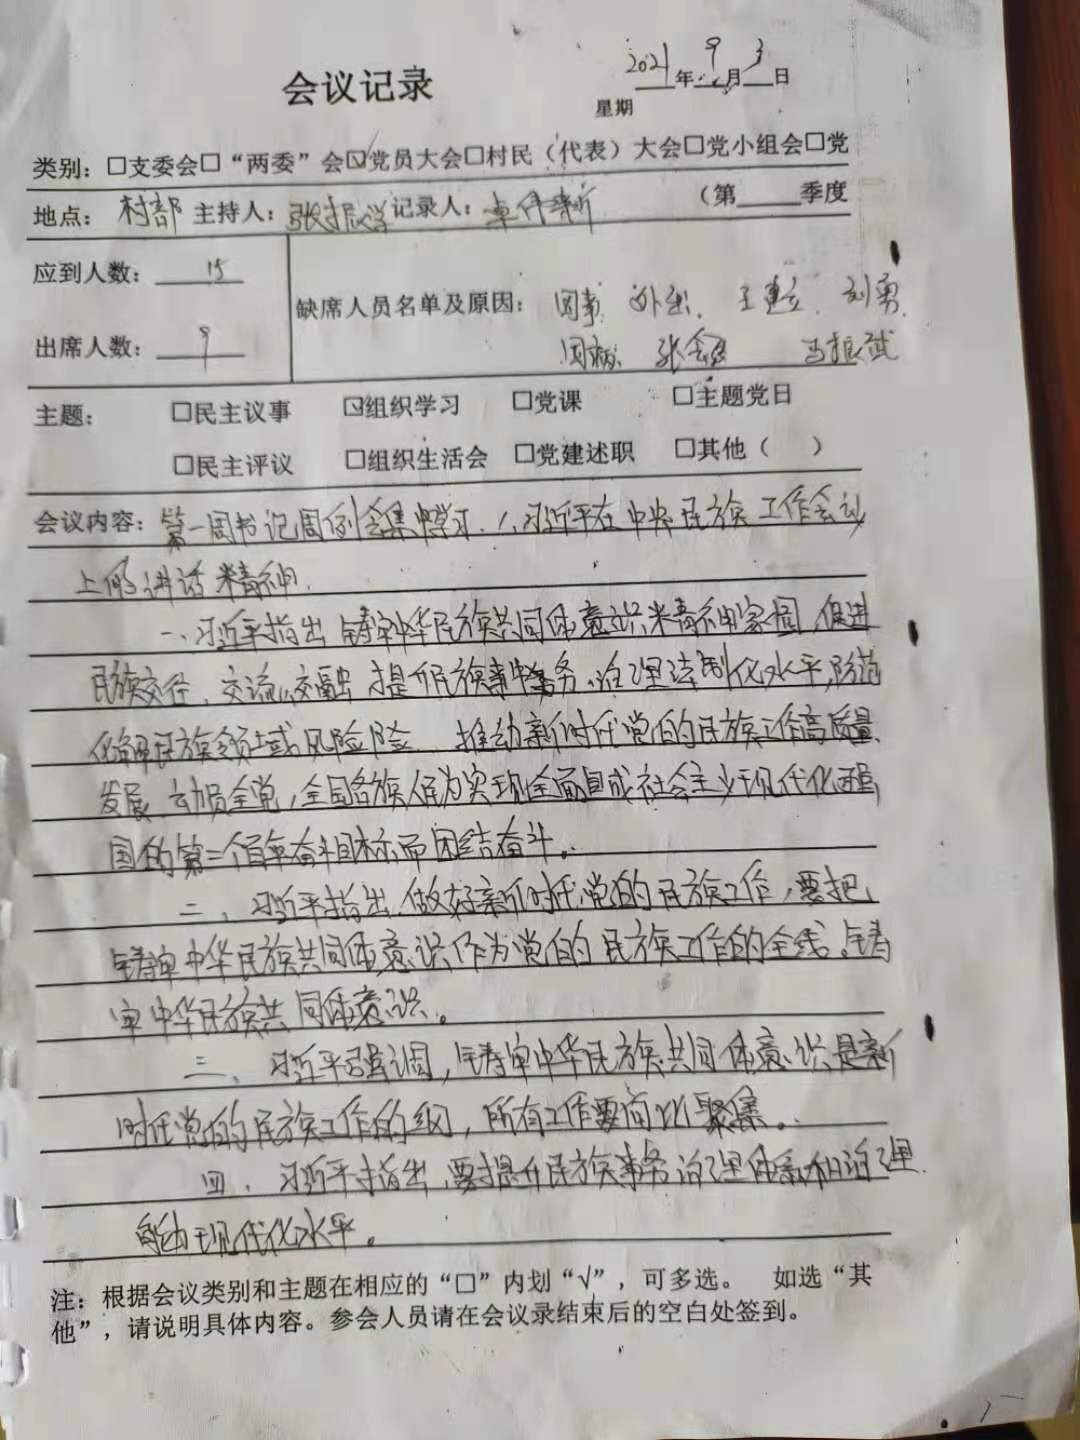 会议记录
2021年9月3日
星期
类别：□支委会□“两委”会☑党员大会□村民（代表）大会□党小组会□党
地点：村部 主持人：张振学 记录人： （第 季度
应到人数：15
缺席人员名单及原因：因事 外出 王建立 刘勇
出席人数：9
因病 张 马振武
主题： □民主议事 ☑组织学习 □党课 □主题党日
□民主评议 □组织生活会 □党建述职 □其他（ ）
会议内容：第一周书记周例会集中学习.1、习近平在中央民族工作会议
上的讲话精神.
一、习近平指出 铸牢中华民族共同体意识精神家园，促进
民族交往、交流、交融 提升民族事务治理法制化水平，防范
化解民族领域风险险、推动新时代党的民族工作高质量
发展、动员全党，全国各族人民为实现全面建成社会主义现代化强
国的第二个百年奋斗目标而团结奋斗。
二、习近平指出.做好新时代党的民族工作，要把
铸牢中华民族共同体意识作为党的民族工作的全线。铸
牢中华民族共同体意识。
三、习近平强调，铸牢中华民族共同体意识是新
时代党的民族工作的纲，所有工作要向此聚集。
四、习近平指出，要提升民族事务治理体系和治理
能力现代化水平。
注：根据会议类别和主题在相应的“□”内划“√”，可多选。 如选“其
他”，请说明具体内容。参会人员请在会议录结束后的空白处签到。